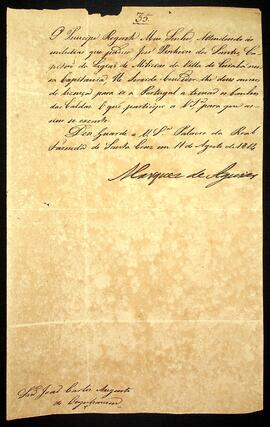 35.
O Principe Regente Meu Senhor Attendendo às
molestias que padece José Pinheiro dos Santos, Ca-
pitão da Legião de Milicias da Villa de Cuiabá nessa
Capitania: Ha servido Conceder-lhe dous annos
de licença para ir a Portugal a tomar os banhos
das Caldas: O que participo a V.S.ª para que as-
sim se execute.
Deos Guarde a V.S.ª Palacio da Real
Fazenda de Santa Cruz em 11 de Agosto de 1814
Marquez de Aguiar
Snr. João Carlos Augusto
de Oeynhausen